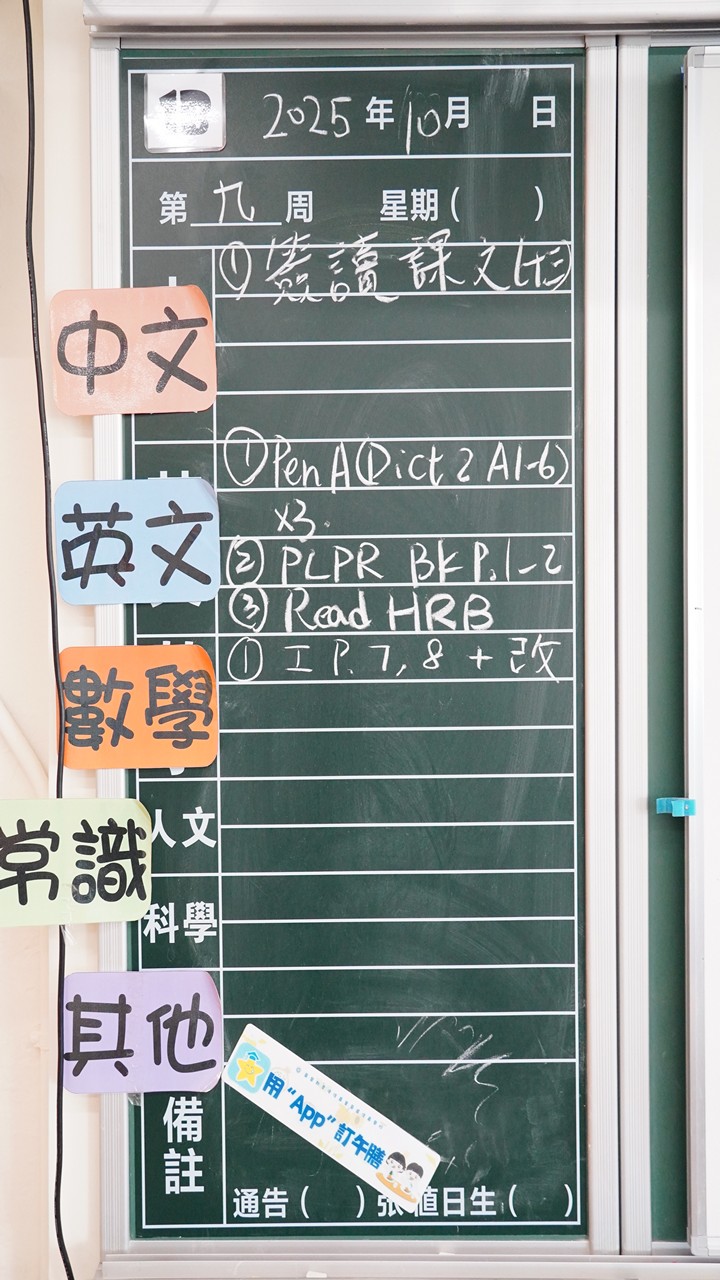 2025年10月 日
第 九 周 星期( )
中文
① 簽讀課文(十三)
英文
① Pen A (Dict 2 A1-6)
x3.
② PLPR BK P.1-2
③ Read HRB
數學
① 工 P.7, 8 + 改
人文
常識
科學
其他
備註
用“App”訂午膳
通告( )張 值日生( )